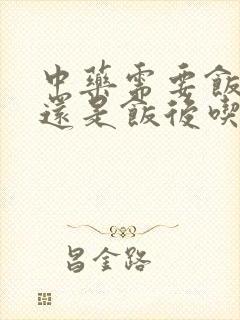 中藥需要飯
還是飯後喫
昌金路